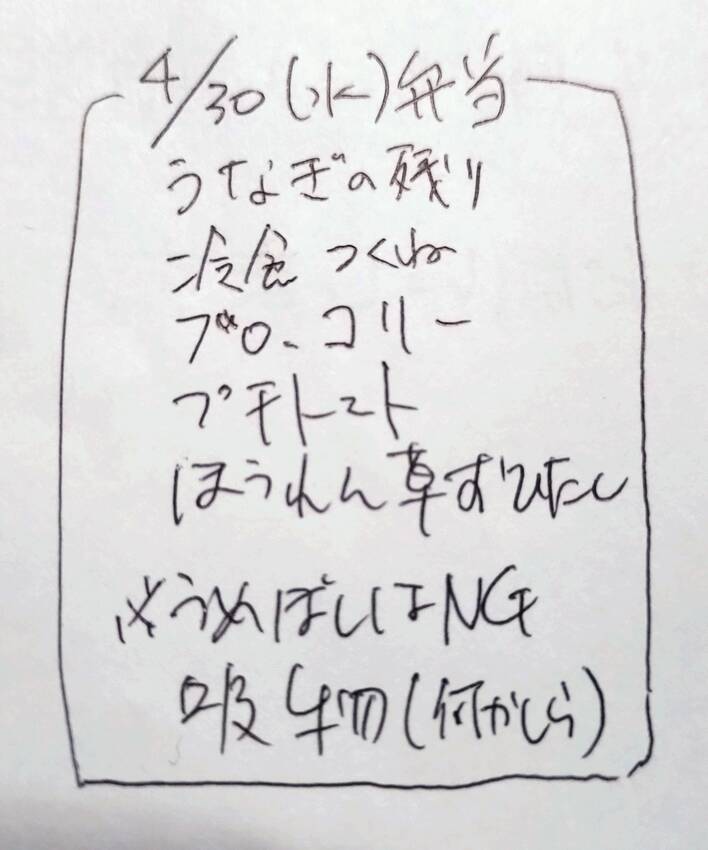 4/30(水)弁当
うなぎの残り
冷食 つくね
ブロッコリー
プチトマト
ほうれん草おひたし
※うめぼしはNG
吸物(何かしら)